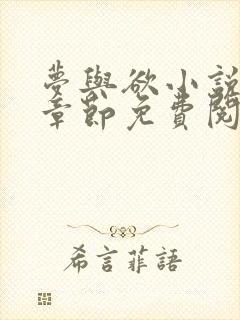 夢與欲小說
章節免費閱
希言菲語